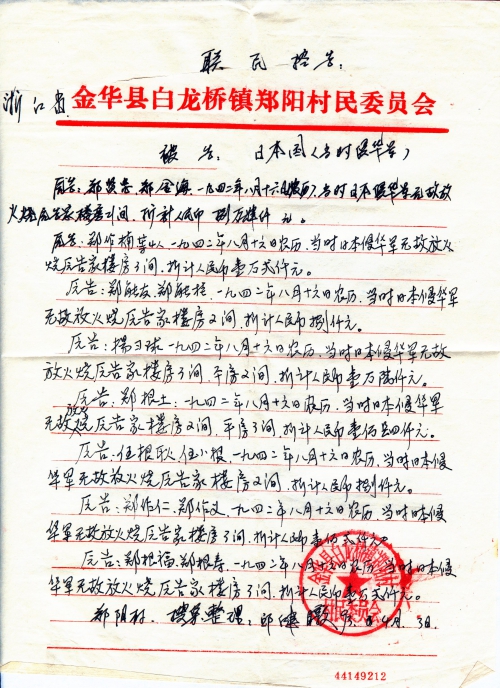 联民控告：
浙江省 金华县白龙桥镇郑阳村民委员会
被告：日本国（当时侵华军）
原告：郑 郑金海，一九四二年八月十六日农历，当时日本侵华军无故放
火烧原告家楼房 间，折计人民币 万 仟元。
原告：郑 楠等 人一九四二年八月十六日农历，当时日本侵华军无故放火
烧原告家楼房 间，折计人民币壹万弍仟元。
原告：郑能友，郑能 ，一九四二年八月十六日农历，当时日本侵华军
无故放火烧原告家楼房 间，折计人民币捌仟元。
原告：楊 球一九四二年八月十六日农历，当时日本侵华军无故
放火烧原告家楼房 间，平房 间，折计人民币壹万 仟元。
原告：郑根土：一九四二年八月十六日农历，当时日本侵华军
无故放火烧原告家楼房 间，平房 间，折计人民币壹 仟元。
原告：伍根 伍小根 一九四二年八月十六日农历，当时日本侵
华军无故放火烧原告家楼房 间，折计人民币捌仟元。
原告：郑作仁，郑作文，一九四二年八月十六日农历，当时日本侵
华军无故放火烧原告家楼房 间，折计人民币壹 弍仟元。
原告：郑根福，郑根寿，一九四二年八月十六日农历，当时日本侵
华军无故放火烧原告家楼房 间，折计人民币壹万弍仟元。
郑阳村．搜集整理： 年4月3日．
金华县白龙桥镇郑阳村
村民委员会
44149212